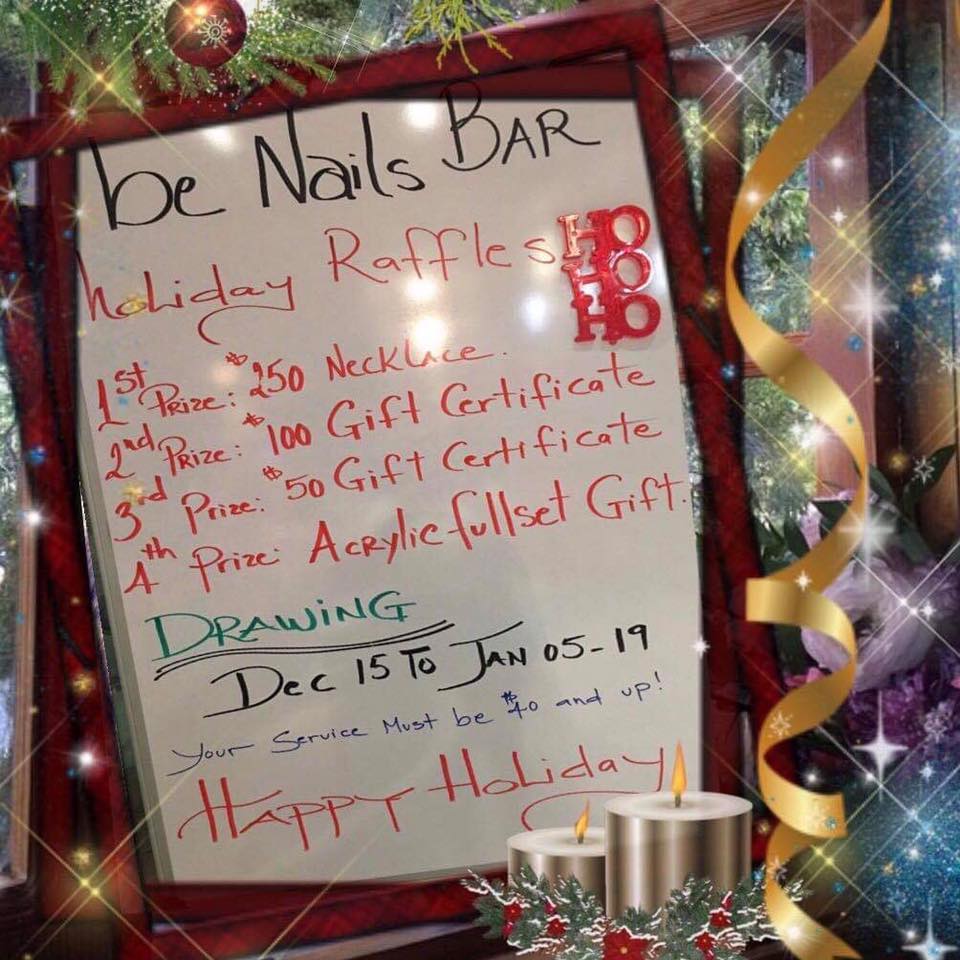 be Nails BAR
holiday Raffles
HO
HO
HO
1st Prize: $250 Necklace.
2nd Prize: $100 Gift Certificate
3rd Prize: $50 Gift Certificate
4th Prize: Acrylic fullset Gift.
DRAWING
Dec 15 To JAN 05-19
Your Service Must be $40 and up!
HAPPY Holiday